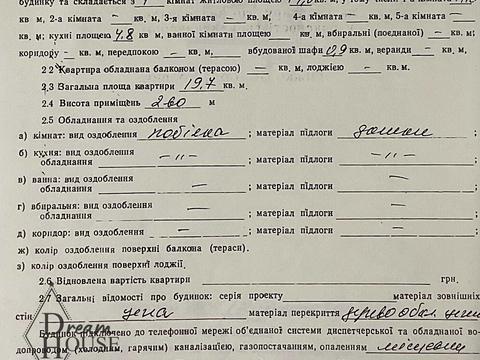 будинку та складається з 1 кімнат житловою площею кв. м, у тому числі 1-а кімната
кв м, 2-а кімната — кв. м, 3-я кімната — кв. м, 4-а кімната — кв. м, 5-а кімната —
кв. м; кухні площею 4.8 кв. м, ванної кімнати площею кв. м, вбиральні (поєднаної) — кв. м;
коридору - кв. м, передпокою — кв. м, вбудованої шафи 0,9 кв. м, веранди — кв. м,
2 2 Квартира обладнана балконом (терасою) — кв. м, лоджією — кв. м.
2.3 Загальна площа квартири 19,7 кв. м.
2.4 Висота приміщень 2-80 м
2.5 Обладнання та оздоблення
а) кімнат: вид оздоблення побілка ; матеріал підлоги дошки ;
б) кухня: вид оздоблення
обладнання —„— ; матеріал підлоги —„— ;
в) ванна: вид оздоблення
обладнання — ; матеріал підлоги — ;
г) вбиральня: вид оздоблення
обладнання — ; матеріал підлоги — ;
д) коридор: вид оздоблення — ; матеріал підлоги — ;
ж) колір оздоблення поверхні балкона (тераси).
з) колір оздоблення поверхні лоджії.
2.6 Відновлена вартість квартири грн.
2.7 Загальні відомості про будинок: серія проекту матеріал зовнішніх
стін цегла матеріал перекриття
Dream
HOUSE
Будинок підключено до телефонної мережі об'єднаної системи диспетчерської та обладнано во-
допроводом (холодним, гарячим) каналізацією, газопостачанням, опаленням місцевим